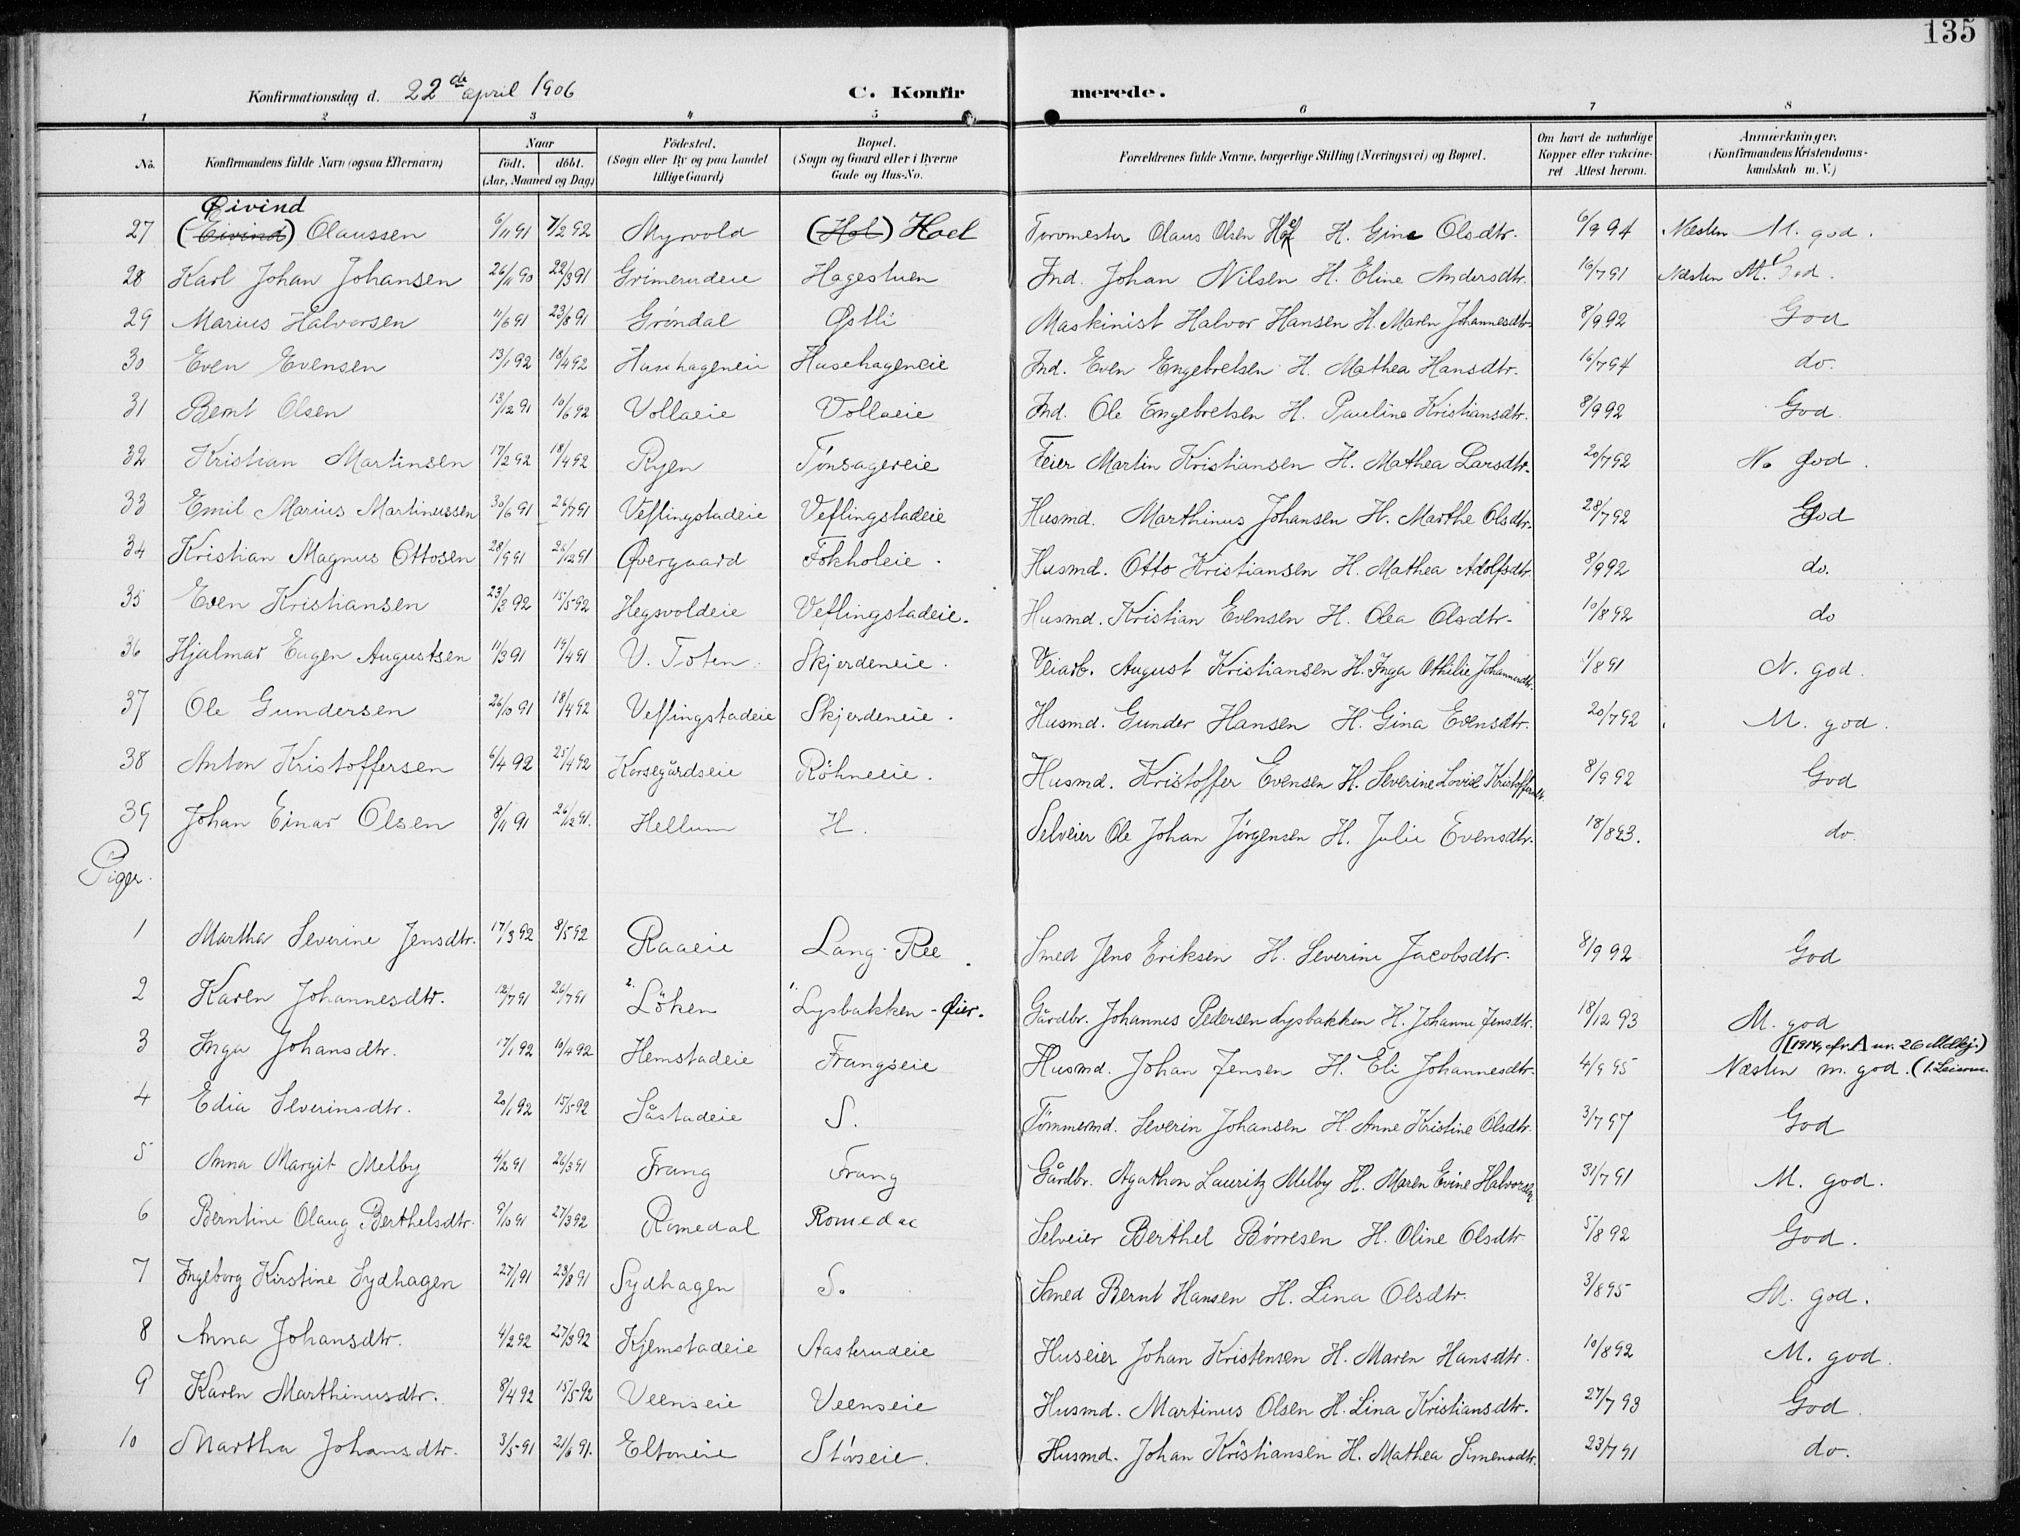 135
Konfirmationsdag d. 22de april 1906 C. Konfirmerede.
1 2 3 4 5 6 7 8
No. Konfirmandens fulde Navn (ogsaa Efternavn) Naar født. døbt. (Aar, Maaned og Dag) Födested. (Sogn eller By og paa Landet tillige Gaard) Bopæl. (Sogn og Gaard eller i Byerne Gade og Hus-No. Forældrenes fulde Navne, borgerlige Stilling (Næringsvei) og Bopæl. Om havt de naturlige Kopper eller vakcineret. Attest herom. Anmærkninger. (Konfirmandens Kristendomskundskab m. V.)
Øivind
27 (Eivind) Olaussen 6/11 91 7/2 92 Myrvold (Hol) Hoel Torvmester Olaus Olsen Hoel H. Gine Olsdtr. 6/9 94 Næsten M. god.
28 Karl Johan Johansen 26/11 90 22/3 91 Grimerudeie Hagestuen Ind. Johan Nilsen H. Eline Andersdtr. 16/7 91 Næsten M. God.
29 Marius Halvorsen 11/6 91 23/8 91 Gröndal Østli Maskinist Halvor Hansen H. Maren Johannesdtr. 8/9 92 God
30 Even Evensen 13/1 92 18/4 92 Husehageneie Husehageneie Ind. Even Engebretsen H. Mathea Hansdtr. 16/7 94 do.
31 Bernt Olsen 13/12 91 10/6 92 Vollaeie Vollaeie Ind. Ole Engebretsen H. Pauline Kristiansdtr. 8/9 92 God.
32 Kristian Martinsen 17/2 92 18/4 92 Ryen Tønsagereie Feier Martin Kristiansen H. Mathea Larsdtr. 20/7 92 N. God.
33 Emil Marius Martinussen 30/6 91 26/7 91 Veflingstadeie Veflingstadeie Husmd. Marthinus Johansen H. Marthe Olsdtr. 28/7 92 God
34 Kristian Magnus Ottosen 28/9 91 26/12 91 Øvergaard Fokholeie. Husmd. Otto Kristiansen H. Mathea Adolfsdtr. 8/9 92 do.
35 Even Kristiansen 23/3 92 15/5 92 Hegsvoldeie Veflingstadeie. Husmd. Kristian Evensen H. Olea Olsdtr. 10/8 92 do
36 Hjalmar Eugen Augustsen 11/3 91 19/4 91 V. Toten. Skjerdeneie. Veiarb. August Kristiansen H. Inga Othilie Johannesdtr. 1/8 91 N. god.
37 Ole Gundersen 26/10 91 18/4 92 Veflingstadeie Skjerdeneie. Husmd. Gunder Hansen H. Gina Evensdtr. 20/7 92 M. god.
38 Anton Kristoffersen 6/4 92 25/4 92 Korsegårdseie Röhneeie. Husmd. Kristoffer Evensen H. Severine Lovise Kristoffersdtr. 8/9 92 God
39 Johan Einar Olsen 8/11 91 26/12 91. Hellum H. Selveier Ole Johan Jørgensen H. Julie Evensdtr. 18/8 93. do.
Piger.
1 Martha Severine Jensdtr. 17/3 92 8/5 92 Raaeie Lang-Ree. Smed Jens Eriksen H. Severine Jacobsdtr. 8/9 92 God
2 Karen Johannesdtr. 12/7 91 26/7 91 2. Löken 1. Lysbakken-Øier. Gårdbr. Johannes Pedersen Lysbakken H. Johanne Jensdtr. 18/12 93 M. god
3 Inga Johansdtr. 17/1 92 10/4 92 Hemstadeie Frangseie Husmd. Johan Jensen H. Eli Johannesdtr. 4/9 95 Næsten m. god.
4 Edia Severinsdtr. 20/1 92 15/5 92 Såstadeie S. Tömmermd. Severin Johansen H. Anne Kristine Olsdtr. 3/7 97 God
5 Anna Margit Melby 4/2 91 26/3 91 Frang Frang Gårdbr. Agathon Lauritz Melby H. Maren Evine Halvorsen 31/7 91 M. god.
6 Berntine Olaug Berthelsdtr. 9/10 91 27/3 92 Romedal Romedal Selveier Berthel Børresen H. Oline Olsdtr 5/8 92 God.
7 Ingeborg Kirstine Sydhagen 27/1 91 23/8 91 Sydhagen S. Smed Bernt Hansen H. Lina Olsdtr. 3/8 95 M. god.
8 Anna Johansdtr. 4/2 92 27/3 92 Kjemstadeie Aasterudeie Huseier Johan Kristensen H. Maren Hansdtr. 10/8 92 M. god.
9 Karen Marthinusdtr. 8/4 92 15/5 92 Veenseie Veenseie Husmd. Martinus Olsen H. Lina Kristiansdtr. 27/7 93 God.
10 Martha Johansdtr. 3/5 91 21/6 91. Eltoneie Störseie. Husmd. Johan Kristiansen H. Mathea Simensdtr. 23/7 91 do.